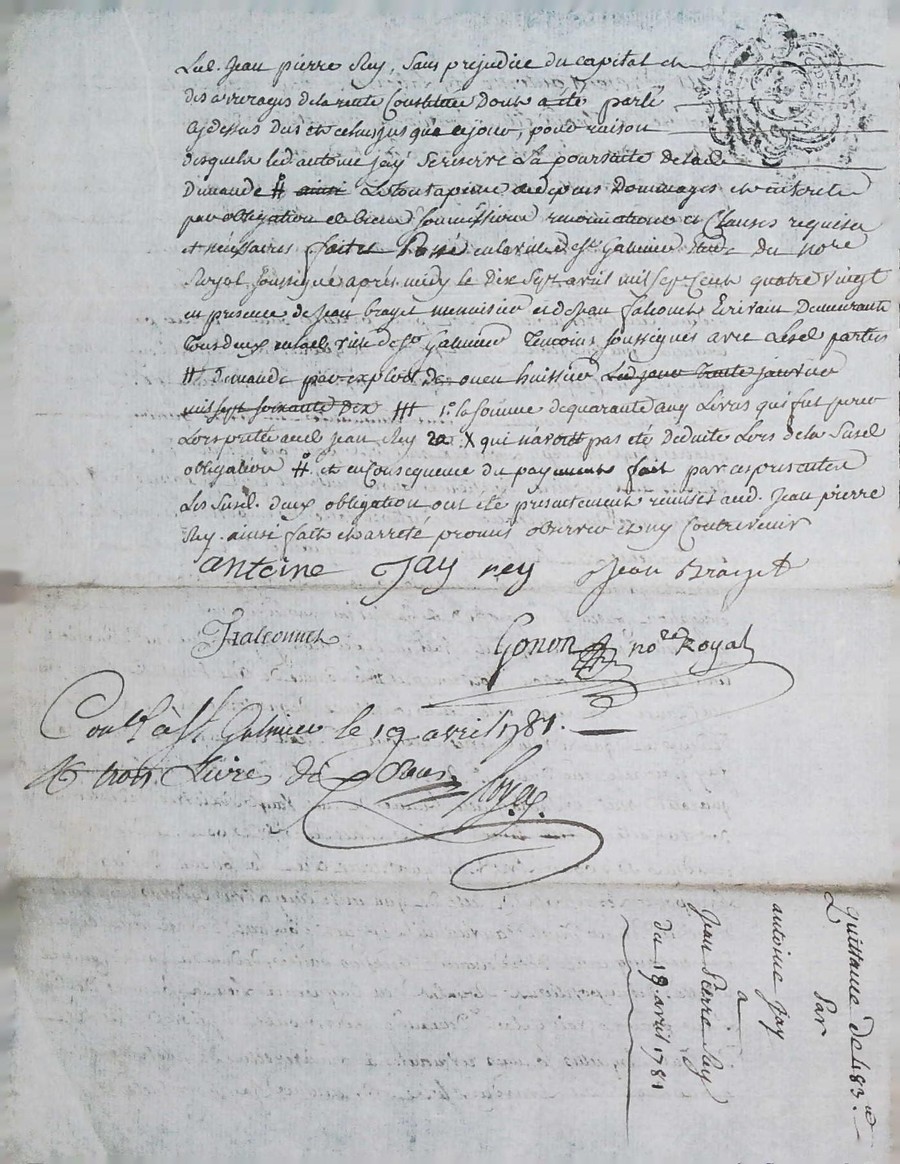 Led. Jean pierre Rey, Sans prejudice du capital et
des arrerages de la rente Constituée Dont a été parlé
cy dessus Dus et echus jusqu'a ce jour, pour raison
desquels led antoine jay Se reserve La poursuite de lad
Demande # ainsi Le tout a peine de depens Dommages et interets
par obligation de biens soumissions renonciations et Clauses requises
et nécessaires faites Passé en la ville de St. Galmier Etude du nore
Royal soussigné après midy le Dix Sept avril mil sept Cent quatre vingt
en presence de Jean brayet menuisier et de Jean falconet Ecrivain Demeurants
Tous deux en lad. ville de St. Galmier Temoins soussignés avec Lesd. parties
# demande par exploit de ouen huissier Led jour Trente janvier
mil sept soixante dix ### 1º la somme de quarante cinq Livres qui fut
Lors prêté aud. Jean Rey X qui n'avoit pas été déduite Lors de la Susd
obligation # et en Consequence du payement fait par ces presentes
Les Susd. deux obligation ont été presentement remises aud. Jean pierre
Rey. ainsi fait et arreté promis observer et ny Contrevenir
antoine Jay rey Jean Brayet
Falconnet
Gonon nore Royal
Conlé à St Galmier le 19 avril 1781.
trois Livres dix Sous
quittance de 483.
Par
antoine Jay
a
Jean Pierre Rey
du 18 avril 1781